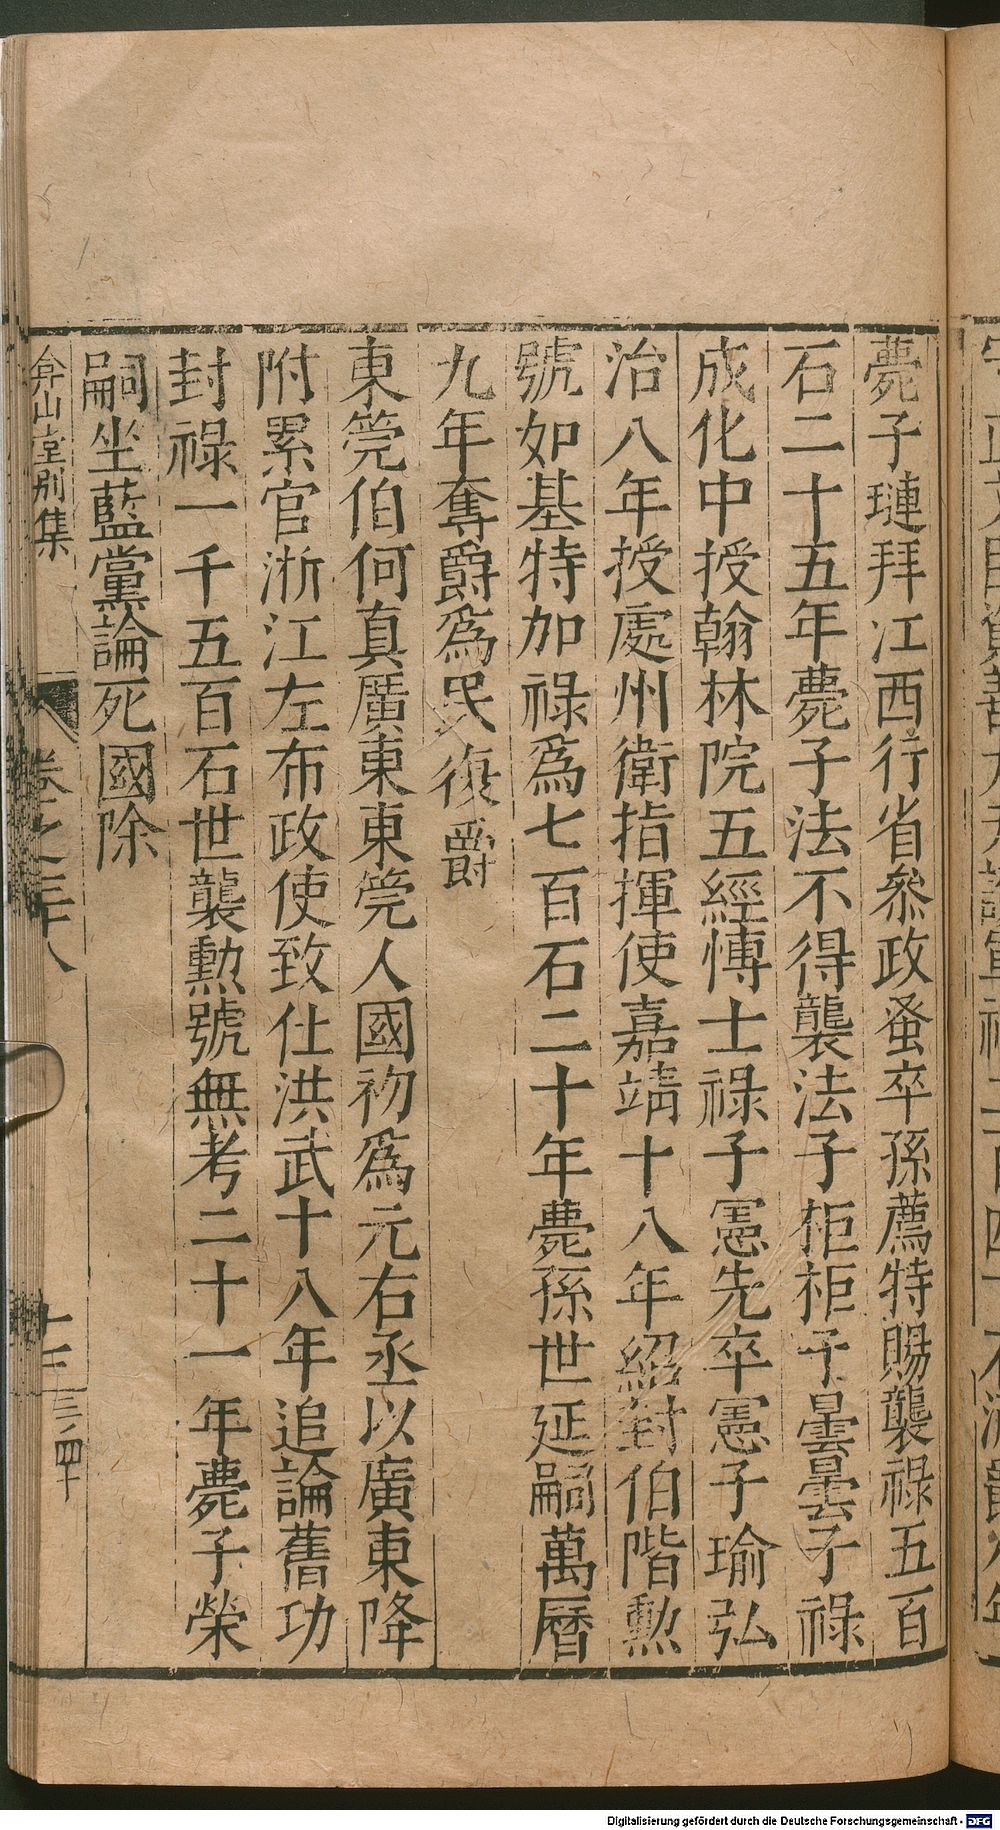 薨子璉拜江西行省叅政蚤卒孫薦特賜襲祿五百
石二十五年薨子法不得襲法子柜柜子曇曇子祿
成化中授翰林院五經博士祿子憲先卒憲子瑜弘
治八年授處州衛指揮使嘉靖十八年紹封伯階勲
號如基特加祿爲七百石二十年薨孫世延嗣萬曆
九年奪爵爲民復爵
東筦伯何真廣東東筦人國初爲元右丞以廣東降
附累官浙江左布政使致仕洪武十八年追論舊功
封祿一千五百石世襲勲號無考二十一年薨子榮
嗣坐藍黨論死國除
弇山堂別集
卷之三十八
十三
Digitalisierung gefördert durch die Deutsche Forschungsgemeinschaft - DFG